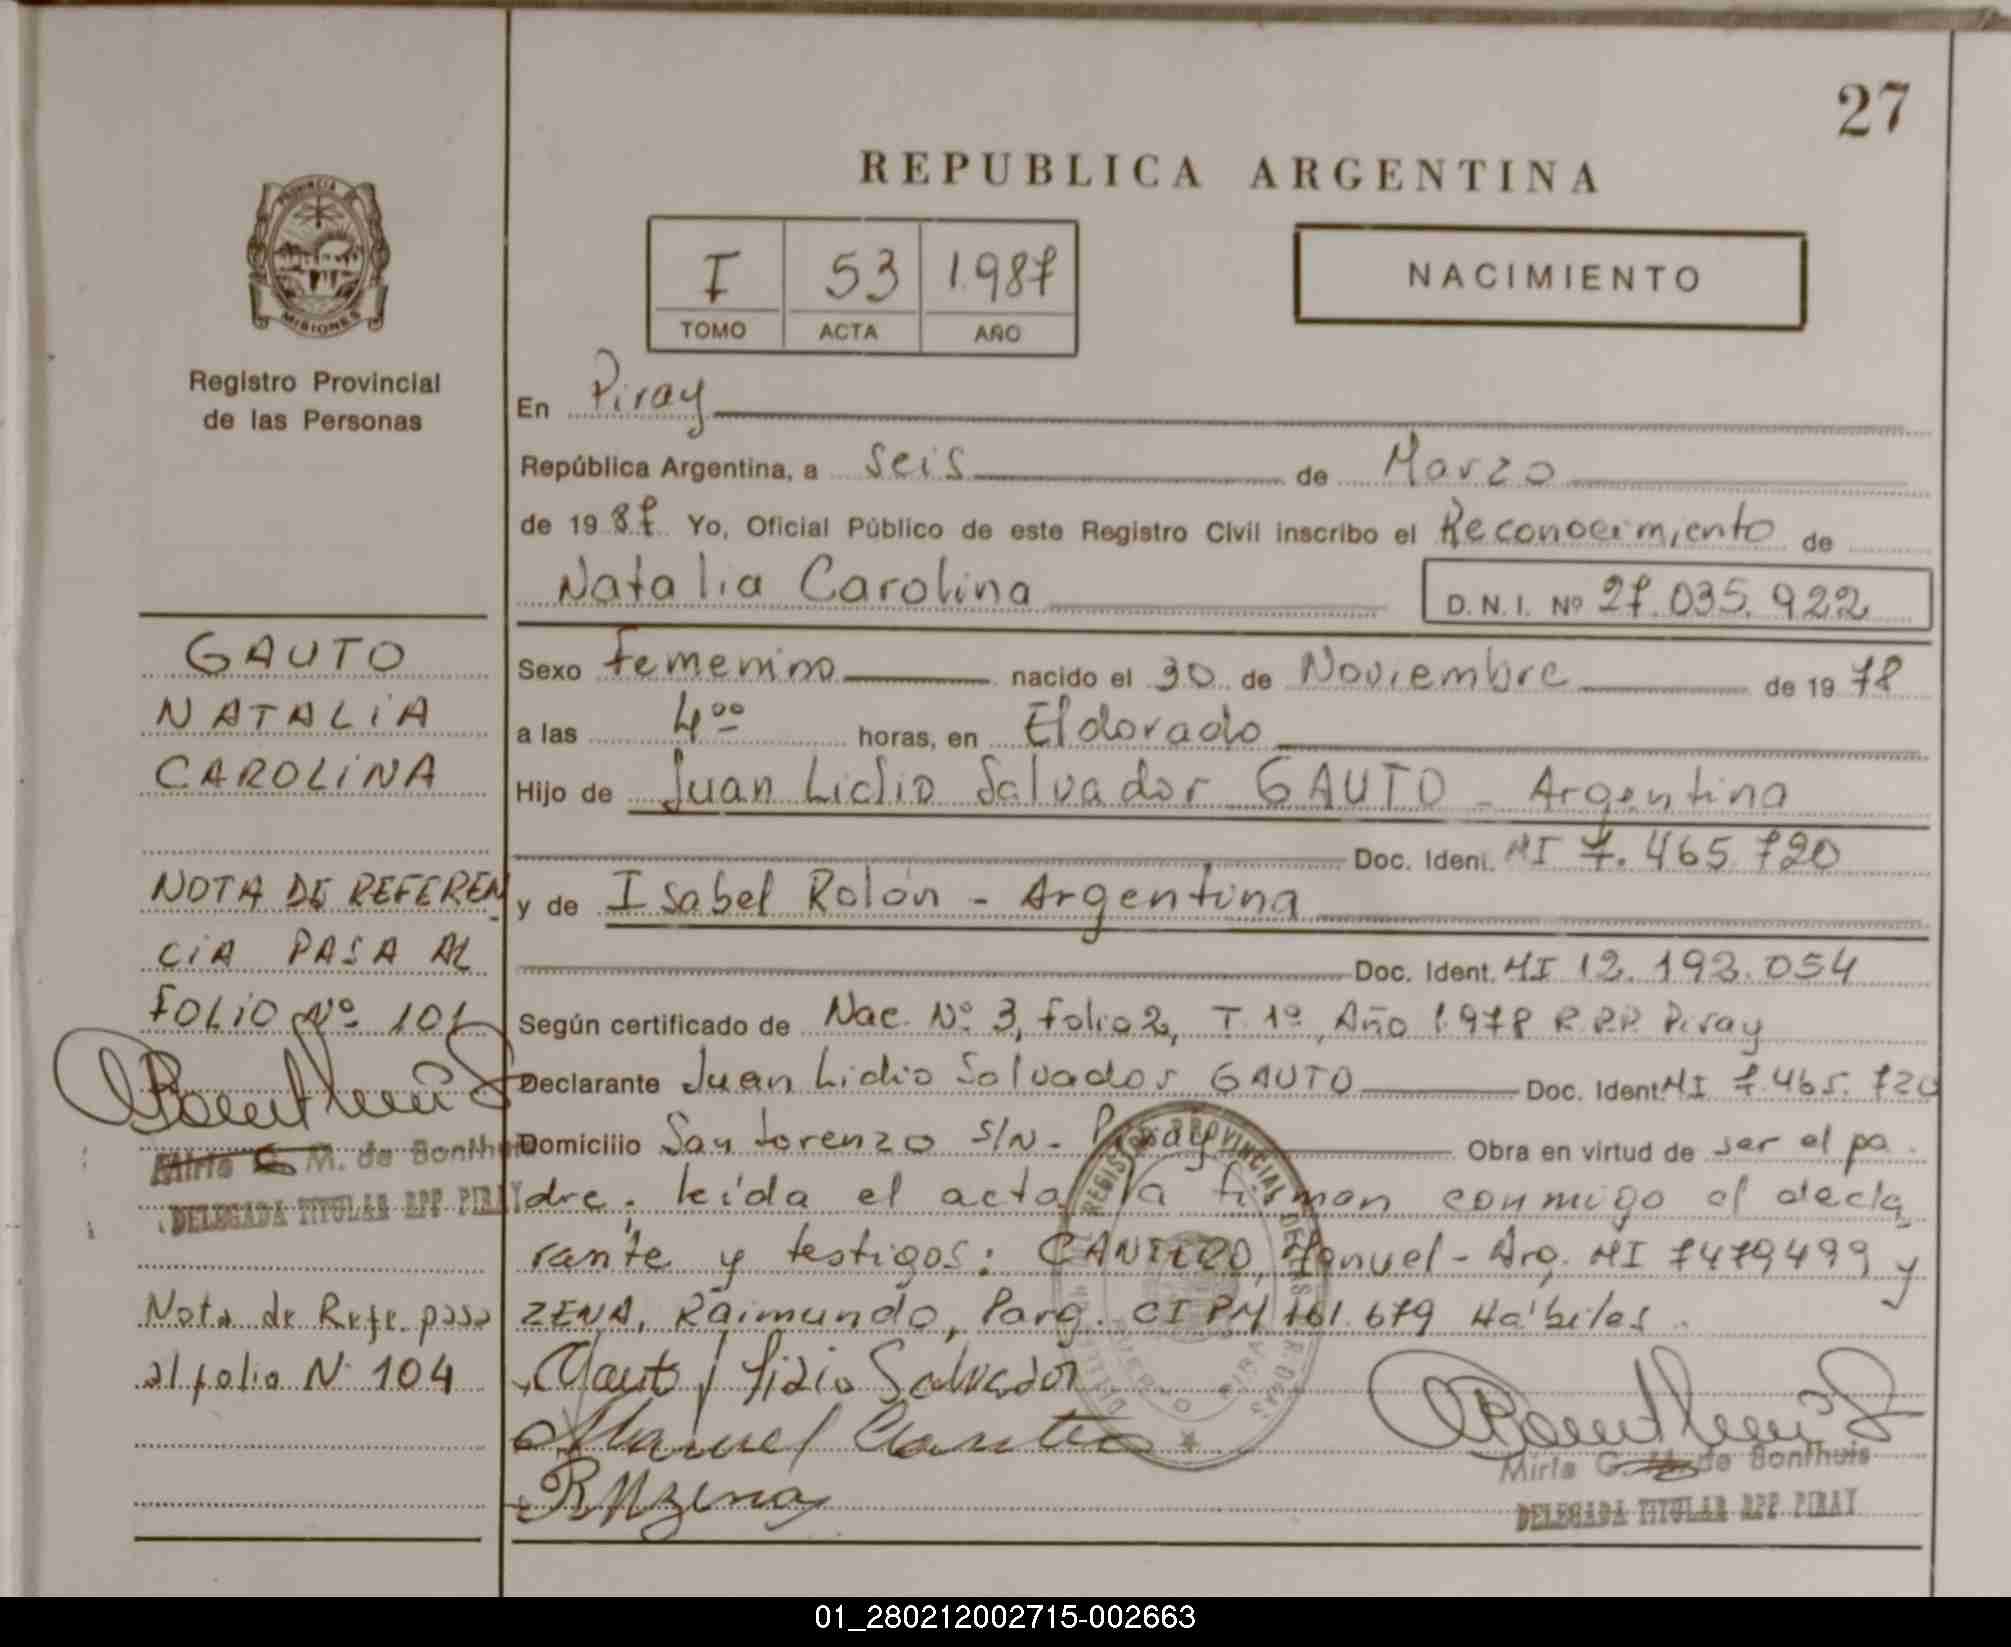 27
REPUBLICA ARGENTINA
I 53 1.987
TOMO ACTA AÑO
NACIMIENTO
PROVINCIA DE
MISIONES
Registro Provincial
de las Personas
En Piray
República Argentina, a seis de Marzo
de 1987 Yo, Oficial Público de este Registro Civil inscribo el Reconocimiento de
Natalia Carolina D.N.I. Nº 27.035.922
GAUTO
NATALIA
CAROLINA
NOTA DE REFEREN
CIA PASA AL
FOLIO Nº 101
Mirta G. M. de Bonthuis
DELEGADA TITULAR RPP PIRAY
Nota de Refe. pasa
al folio Nº 104
Sexo Femenino nacido el 30 de Noviembre de 1978
a las 4ºº horas, en Eldorado
Hijo de Juan Lidio Salvador GAUTO - Argentina
Doc. Ident. MI 7.465.720
y de Isabel Rolón - Argentina
Doc. Ident. MI 12.192.054
Según certificado de Nac. Nº 3, folio 2, T. 1º, Año 1.978 R.P.P. Piray
Declarante Juan Lidio Salvador GAUTO Doc. Ident. MI 7.465.720
Domicilio San Lorenzo S/N- Piray Obra en virtud de ser el pa
dre. leída el acta la firman conmigo el decla
rante y testigos: CANTERO, Manuel - Arg. MI 7479499 y
ZENA, Raimundo, Parg. CI PM 161.679 Hábiles.
Gauto J Lidio Salvador
Manuel Cantero
R Mzena
Mirta G. M. de Bonthuis
DELEGADA TITULAR RPP PIRAY
REGISTRO PROVINCIAL DE LAS PERSONAS
01_280212002715-002663